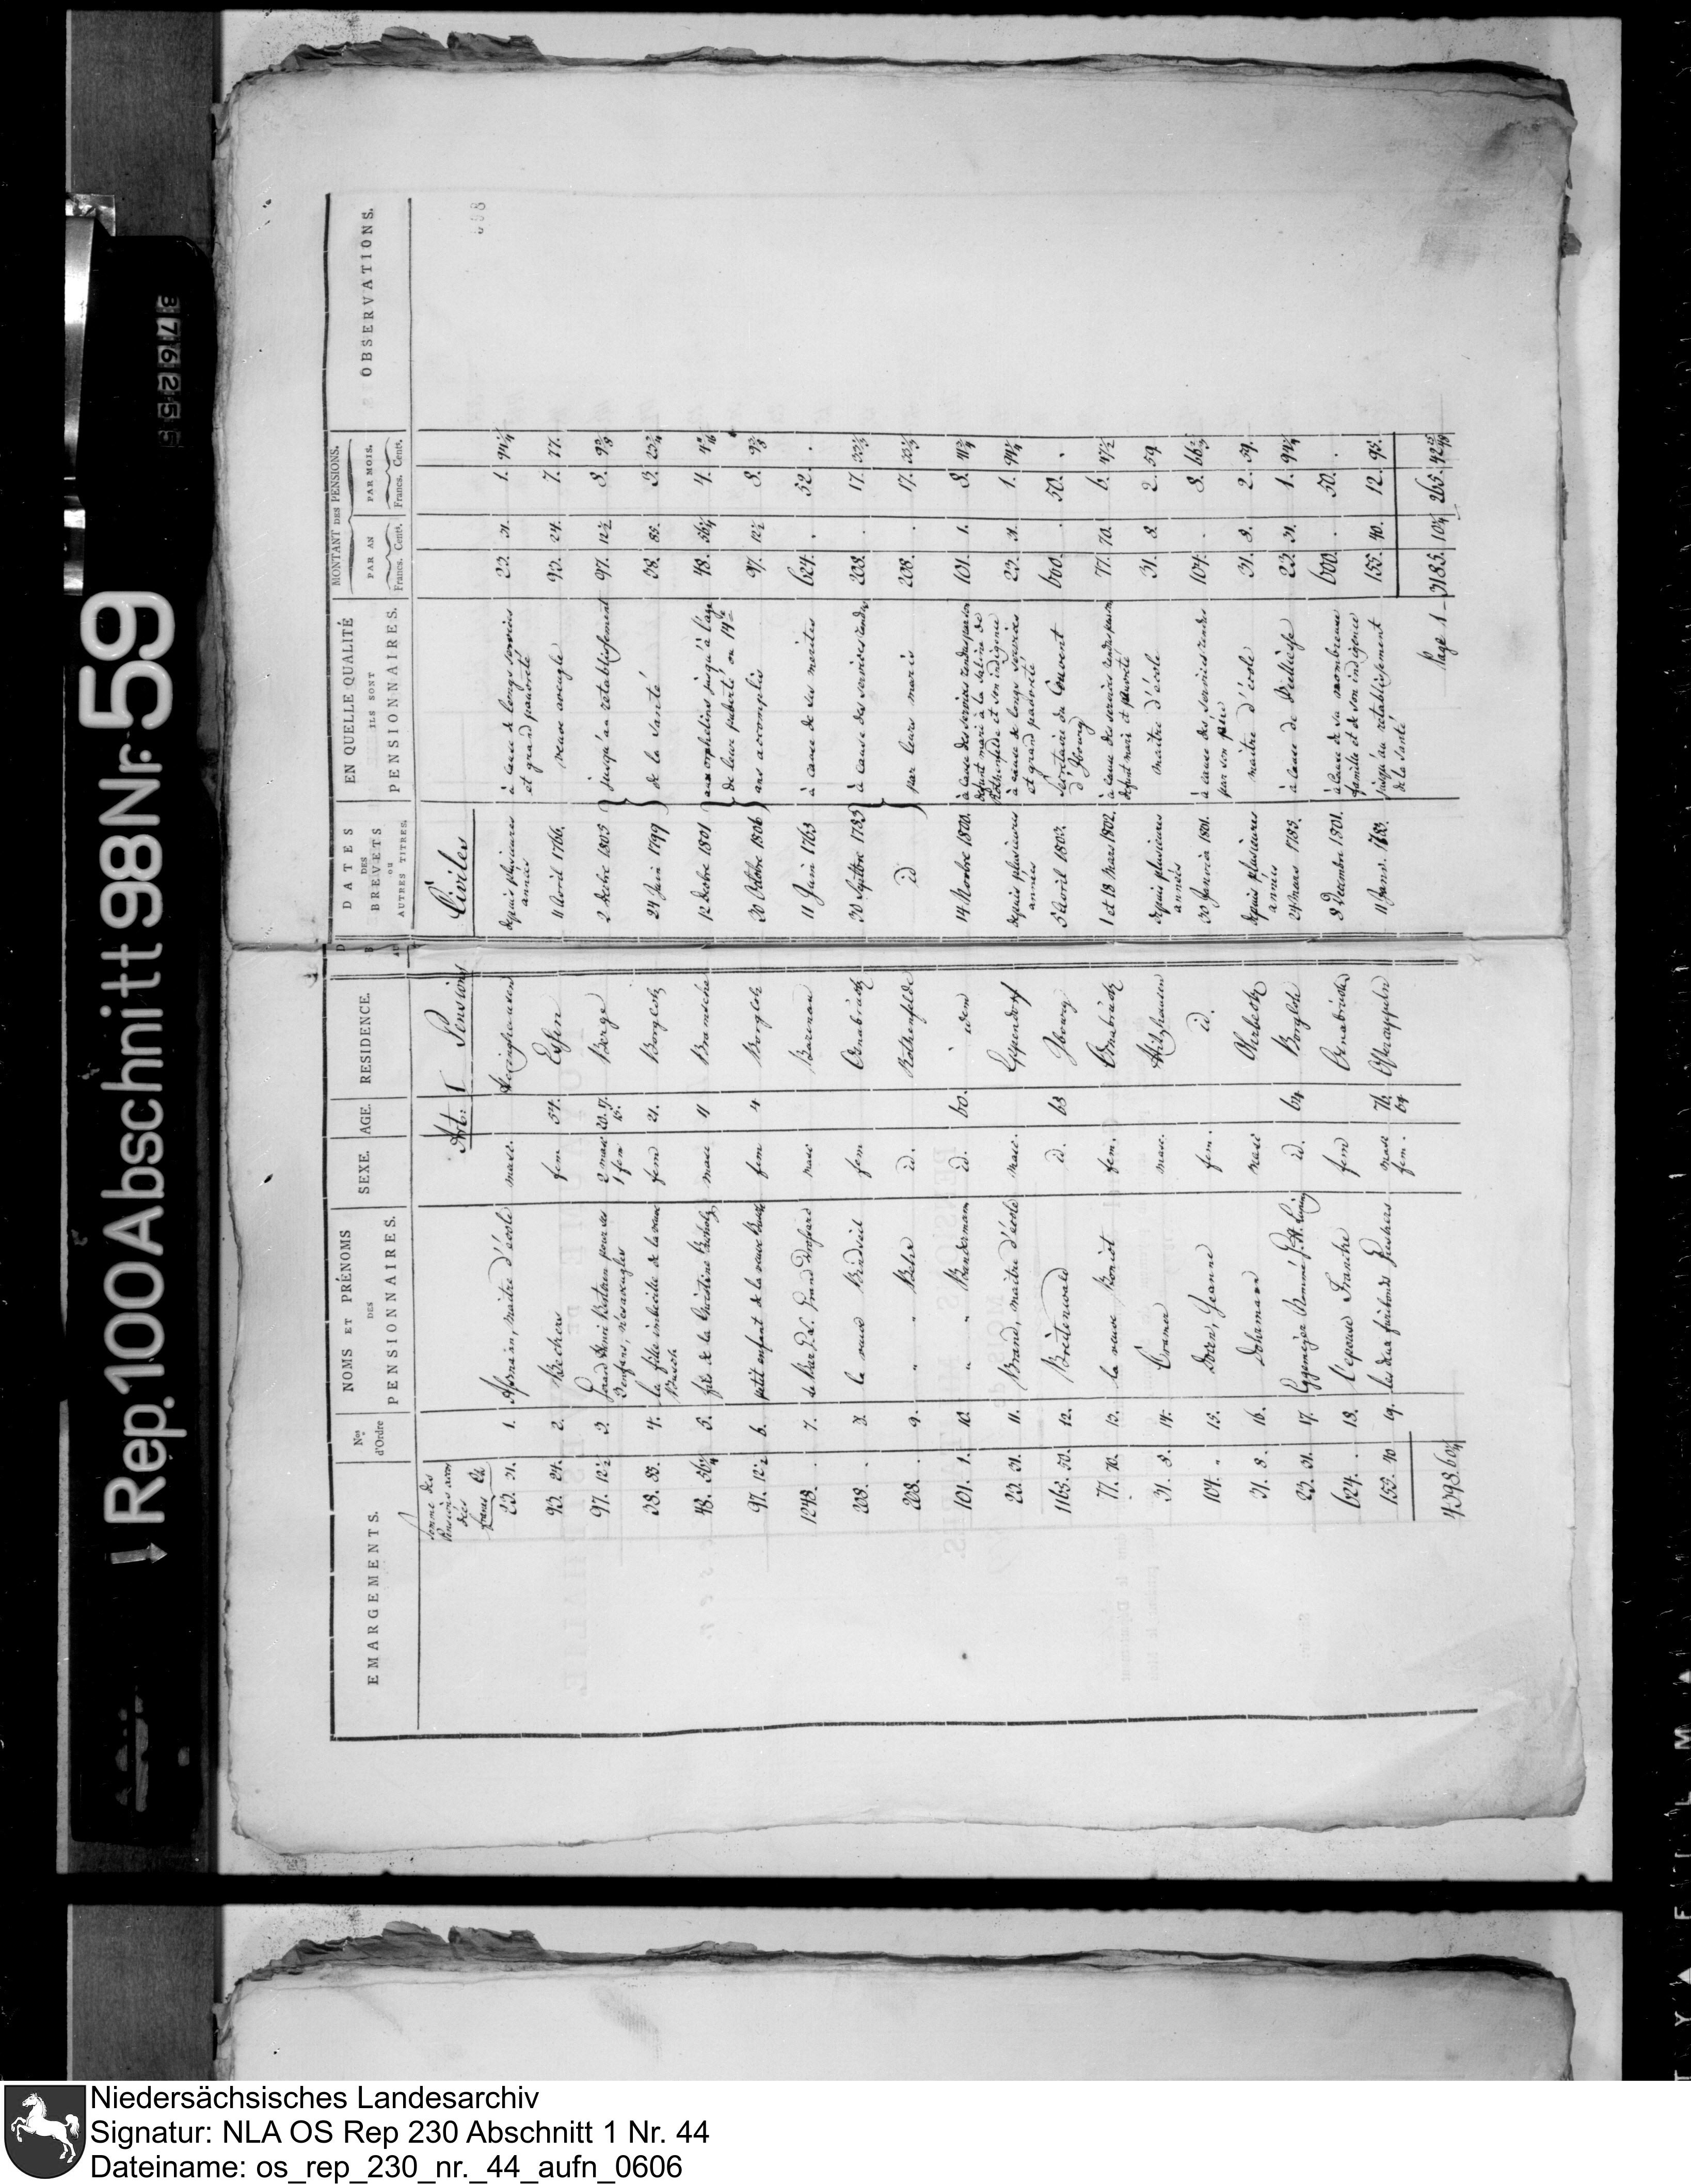 Rep. 100 A Abschnitt 98 Nr. 59
876255
EMARGEMENTS.
Nos d'Ordre
NOMS ET PRÉNOMS
DES
PENSIONNAIRES.
SEXE.
AGE.
RESIDENCE.
DATES
DES
BREVETS
OU
AUTRES TITRES.
EN QUELLE QUALITÉ
ILS SONT
PENSIONNAIRES.
MONTANT DES PENSIONS.
PAR AN
Francs. Cents.
PAR MOIS.
Francs. Cents.
OBSERVATIONS.
Pensions
Civiles
23. 31. 1. maitre d'école masc. depuis plusieures années à cause de longs services et grand pauvreté 23. 31. 1. 94¼
93. 24. 2. Bechers fem 54. Essen 11 Avril 1766. veuve aveugle 93. 24. 7. 77.
97. 12½ 3. 2 masc 1 fem Berge 2 Decbre 1805 jusqu'au retablissement 97. 12½ 8.
38. 85. 4. la fille imbecille de la veuve Busch fem 21. Borgloh 24 Juin 1799 de la Santé 38. 85. 3. 23¾
48. 56¼ 5. fils de la Christine masc 11 Bramsche 12 Decbre 1801 aux orphelins jusqu'à l'age de leur puberté ou 14de 48. 56¼ 4.
97. 12½ 6. petit enfant de la veuve fem 4 Borgloh 20 Octobre 1806 ans accomplis 97. 12½ 8.
1248. . 7. masc Barenau 11 Juin 1763 à cause de ses merites 624. . 52. .
208. . 8. la veuve fem Osnabruck 30 Septbre 1783 à cause des services rendus 208. . 17. 33⅓
208. . 9. " " id. Rothenfelde id par leurs maris 208. . 17. 33⅓
101. 1. 10. " " id. 60. idem 14 Novbre 1800. à cause des services rendus par son defunt mari à la Saline de Rothenfelde et son indigence 101. 1. 8. 41¾
23. 31. 11. Brand, maitre d'école masc. Eppendorf depuis plusieures années à cause de longs services et grand pauvreté 23. 31. 1. 94¼
1165. 50. 12. Breitenwald id. 63 Jbourg 5 Avril 1803. du Couvent d'Jbourg 600. . 50. .
77. 70. 13. la veuve fem. Osnabruck 1 et 18 Mars 1802. à cause des services rendus par son defunt mari et pauvreté 77. 70. 6. 47½
31. 8. 14. Cramer masc. depuis plusieures années maitre d'école 31. 8 2. 59
104. " 15. Jeanne fem. id. 30 Janvier 1801. à cause des services rendus par son père 104. . 8. 66⅔
31. 8. 16. Dohrmann masc Ohrbeck depuis plusieures années maitre d'école 31. 8. 2. 59.
23. 31. 17. id. 64 Borgloh 24 Mars 1785. à cause de Vieillesse 23. 31. 1. 94¼
624. . 18. l'epouse Francke fem Osnabruck 9 Decembre 1801. à cause de sa nombreuse famille et de son indigence 600. . 50. .
155. 40 19. les deux furibonds masc fem. Ostercappeln 11 Janv. jusqu'au retablissement de la Santé 155. 40. 12. 95.
4398. 60¼
Page 1 3185. 10¼ 265.
Niedersächsisches Landesarchiv
Signatur: NLA OS Rep 230 Abschnitt 1 Nr. 44
Dateiname: os_rep_230_nr._44_aufn_0606